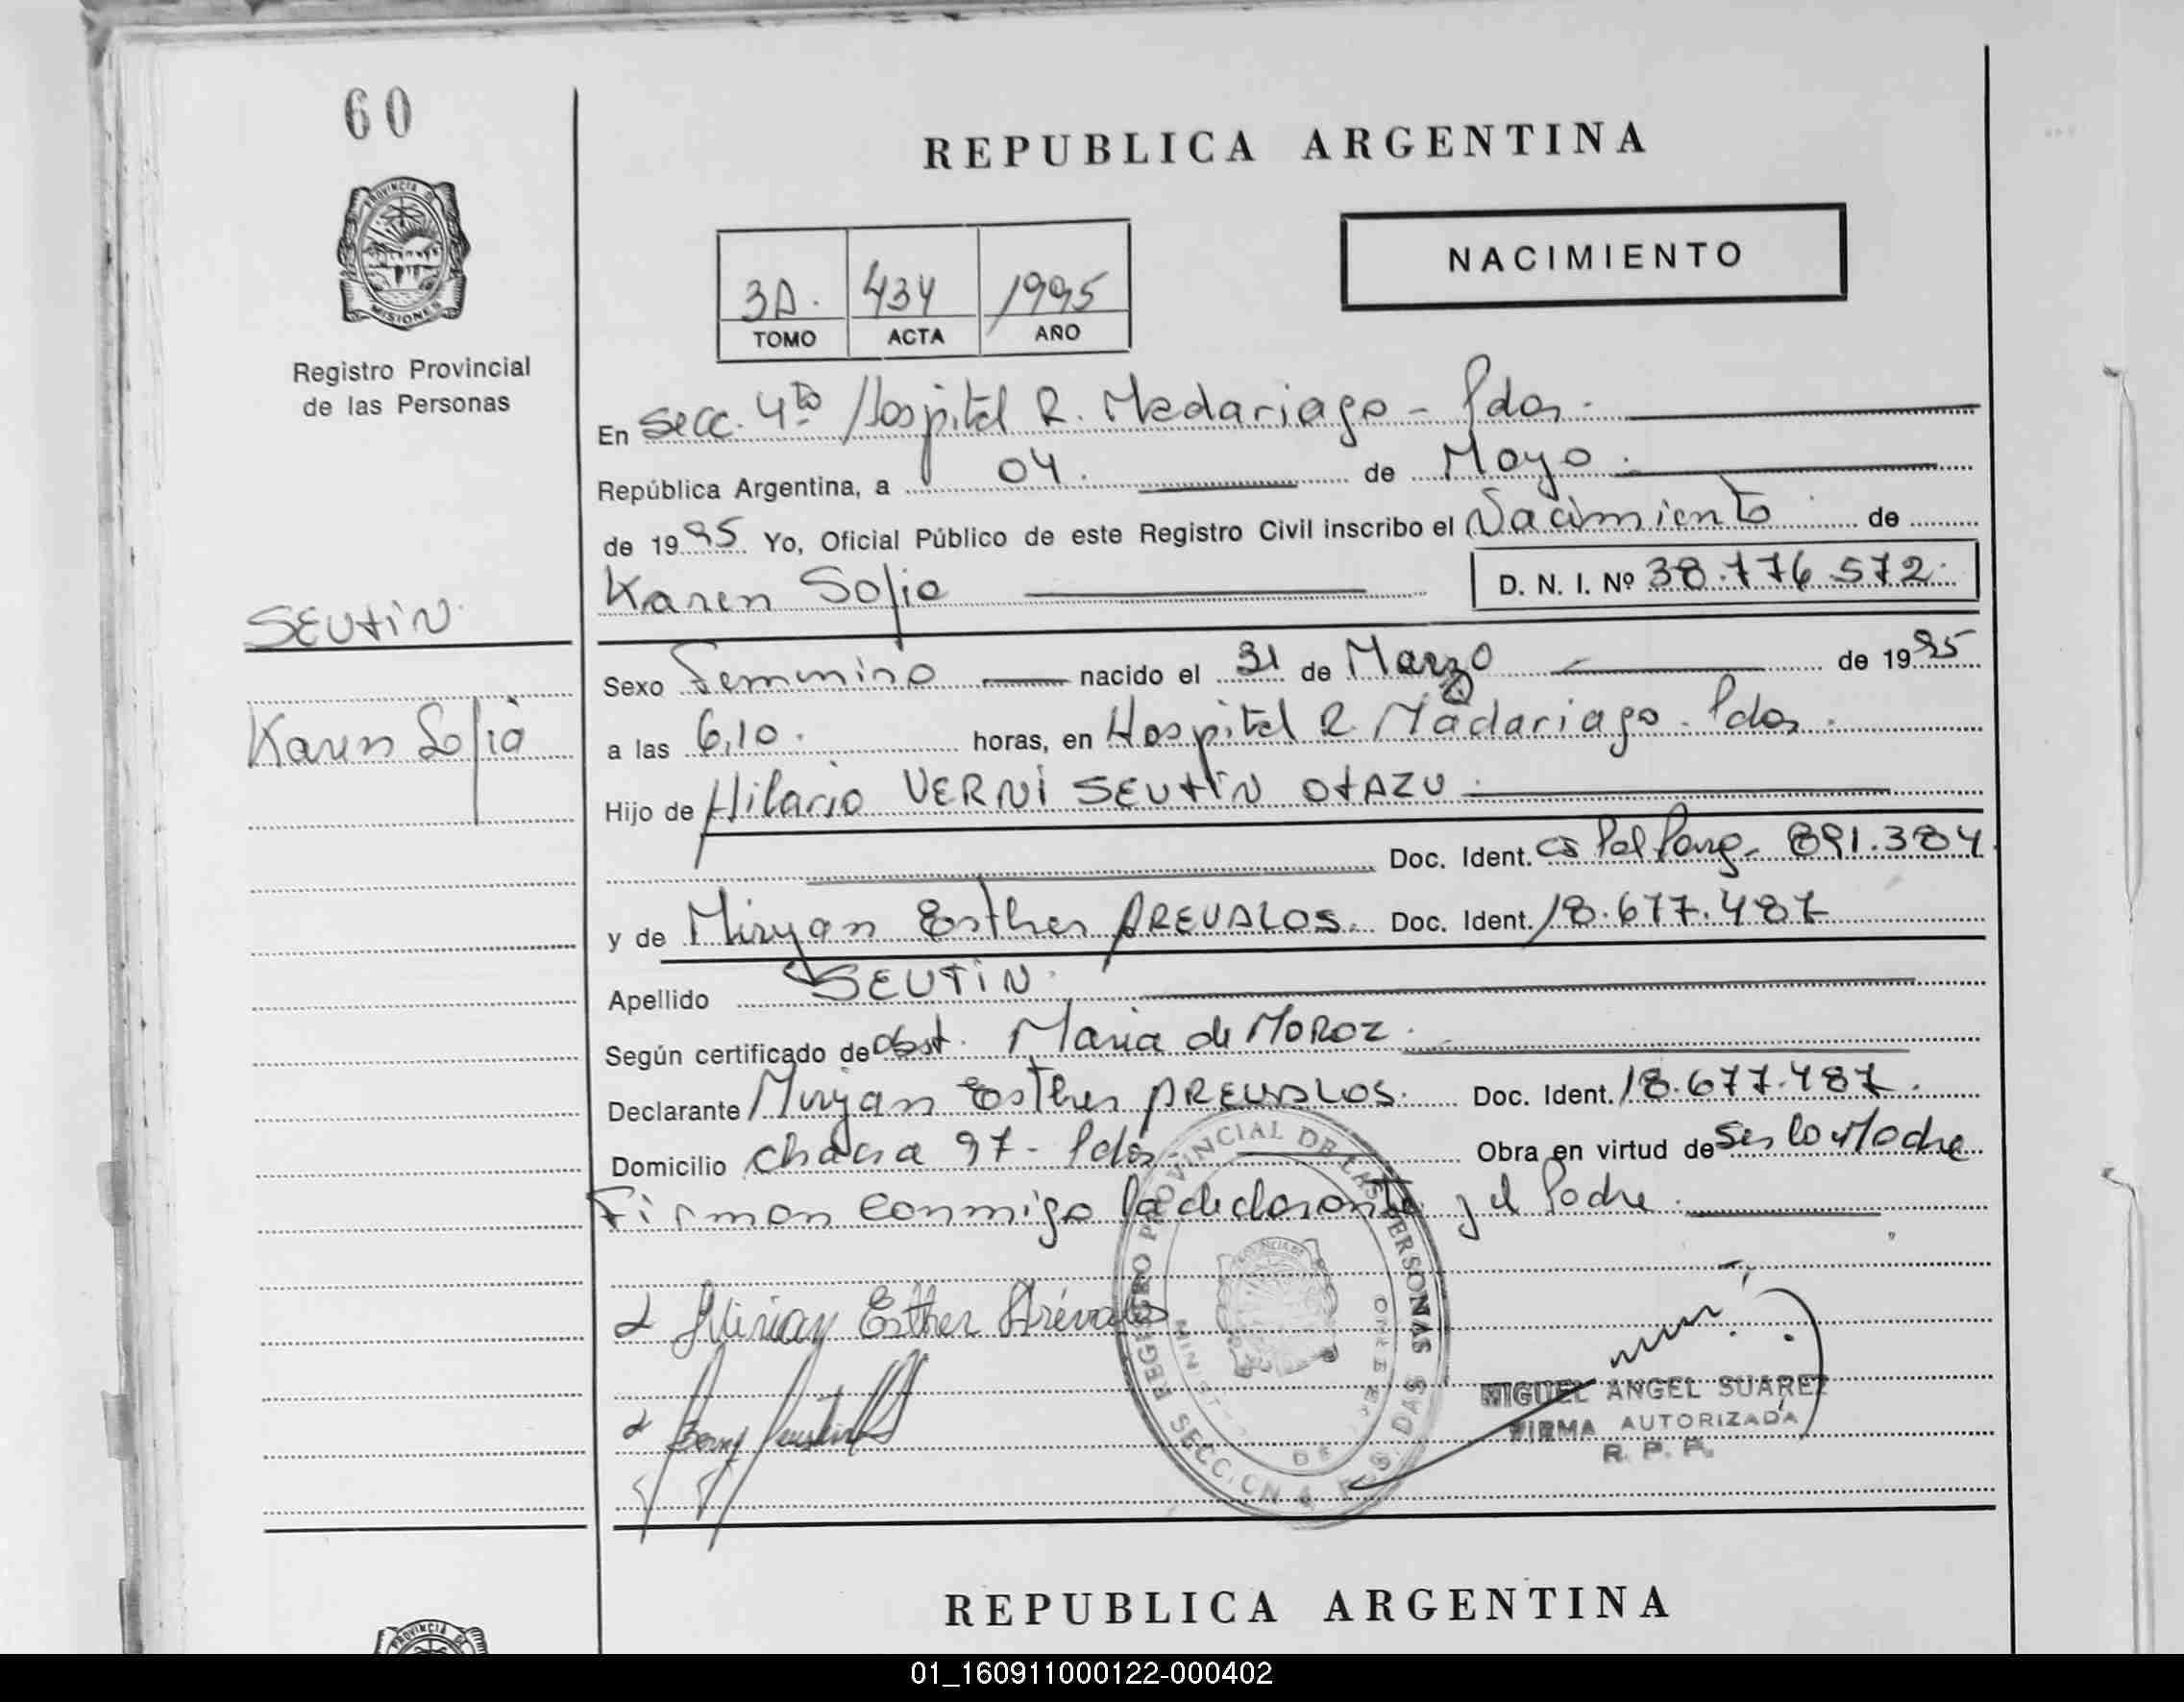 60
REPUBLICA ARGENTINA
PROVINCIA DE
MISIONES
NACIMIENTO
3A. 434 1995
TOMO ACTA AÑO
Registro Provincial
de las Personas
En Secc. 4ta Hospital R. Madariaga - Pdas.
República Argentina, a 04. de Mayo.
de 1995 Yo, Oficial Público de este Registro Civil inscribo el Nacimiento de
Karen Sofia D. N. I. Nº 38.776.572.
SEUTIN.
Sexo Femenino nacido el 31 de Marzo de 1995
Karen Sofia
a las 6,10. horas, en Hospital R. Madariaga - Pdas.
Hijo de Hilario VERNI SEUTIN OTAZU.
Doc. Ident. Pol 891.384
y de Miryan Esther AREVALOS. Doc. Ident. 18.677.487
Apellido SEUTIN.
Según certificado de Obst. Maria de MOROZ.
Declarante Miryan Esther AREVALOS. Doc. Ident. 18.677.487.
Domicilio Chacra 97 - Pdas. Obra en virtud de Ser la Madre
Firman conmigo la declarante y el Padre.
REGISTRO PROVINCIAL DE LAS PERSONAS
Esther Arévalos
MIGUEL ANGEL SUAREZ
FIRMA AUTORIZADA
R. P. P.
REPUBLICA ARGENTINA
PROVINCIA DE
01_160911000122-000402